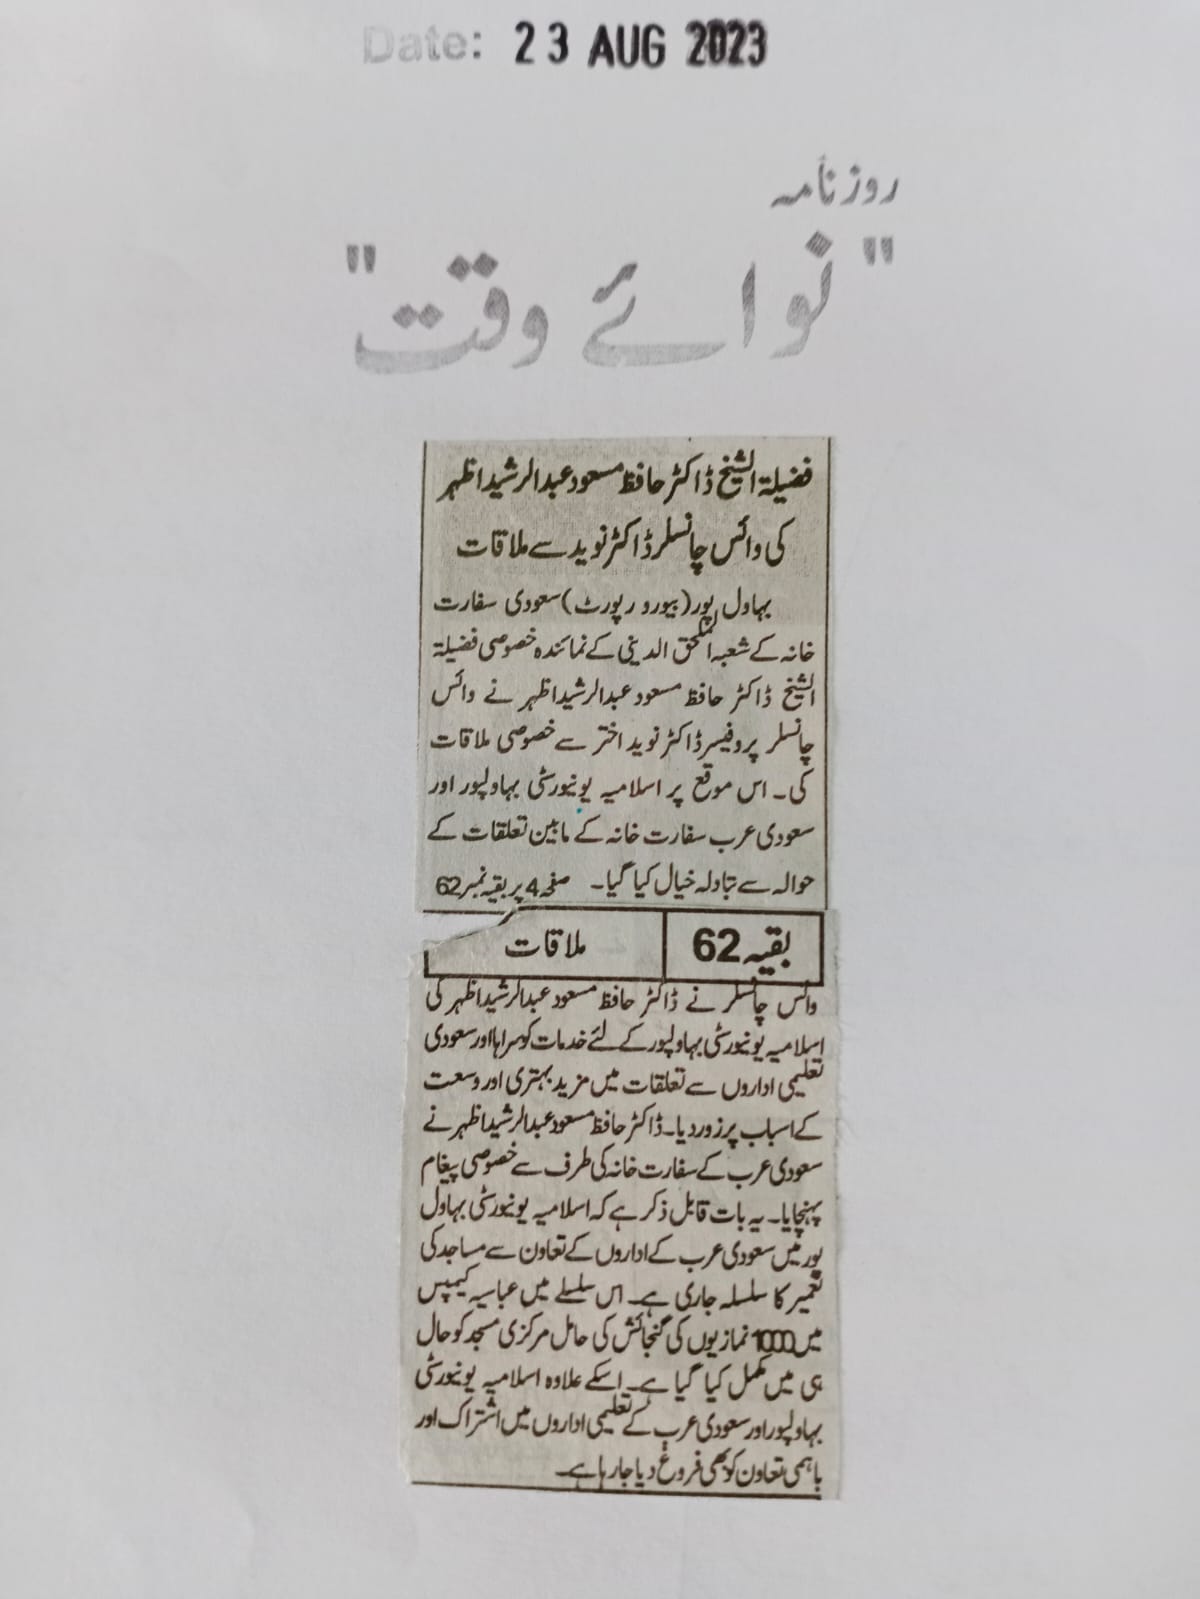 Date: 23 AUG 2023
روزنامہ
"نوائے وقت"
فضیلۃ الشیخ ڈاکٹر حافظ مسعود عبدالرشید اظہر
کی وائس چانسلر ڈاکٹر نوید سے ملاقات
بہاول پور (بیورو رپورٹ) سعودی سفارت
خانہ کے شعبہ الملحق الدینی کے نمائندہ خصوصی فضیلۃ
الشیخ ڈاکٹر حافظ مسعود عبدالرشید اظہر نے وائس
چانسلر پروفیسر ڈاکٹر نوید اختر سے خصوصی ملاقات
کی۔ اس موقع پر اسلامیہ یونیورسٹی بہاولپور اور
سعودی عرب سفارت خانہ کے مابین تعلقات کے
حوالہ سے تبادلہ خیال کیا گیا۔ صفحہ 4 پر بقیہ نمبر 62
بقیہ 62 ملاقات
وائس چانسلر نے ڈاکٹر حافظ مسعود عبدالرشید اظہر کی
اسلامیہ یونیورسٹی بہاولپور کے لئے خدمات کو سراہا اور سعودی
تعلیمی اداروں سے تعلقات میں مزید بہتری اور وسعت
کے اسباب پر زور دیا۔ ڈاکٹر حافظ مسعود عبدالرشید اظہر نے
سعودی عرب کے سفارت خانہ کی طرف سے خصوصی پیغام
پہنچایا۔ یہ بات قابل ذکر ہے کہ اسلامیہ یونیورسٹی بہاول
پور میں سعودی عرب کے اداروں کے تعاون سے مساجد کی
تعمیر کا سلسلہ جاری ہے۔ اس سلسلے میں عباسیہ کیمپس
میں 1000 نمازیوں کی گنجائش کی حامل مرکزی مسجد کو حال
ہی میں مکمل کیا گیا ہے۔ اسکے علاوہ اسلامیہ یونیورسٹی
بہاولپور اور سعودی عرب کے تعلیمی اداروں میں اشتراک اور
باہمی تعاون کو بھی فروغ دیا جا رہا ہے۔